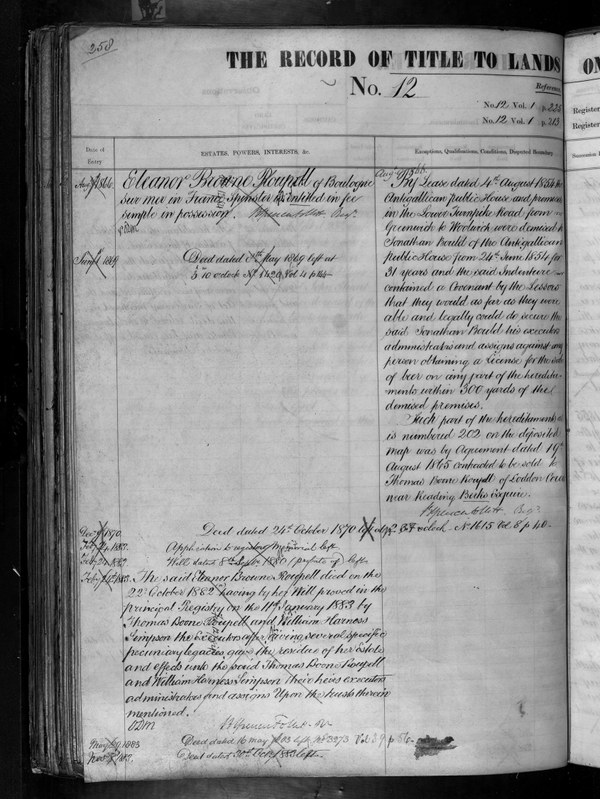 258
THE RECORD OF TITLE TO LANDS
ON
No. 12
Reference.
No. 12 Vol. 1 p. 226
No. 12 Vol. 1 p. 213
Register
Register
Date of
Entry
ESTATES, POWERS, INTERESTS, &c.
Exceptions, Qualifications, Conditions, Disputed Boundary
Eleanor Browne Roupell of Boulogne
sur mer in France Spinster is entitled in fee
simple in possession.
1869
Deed dated 8th May 1869 left at
5 to 10 o'clock No 1429 Vol 4 p
By Lease dated 4th August 1854 the
Antigallican public House and premises
in the Lower Turnpike Road from
Greenwich to Woolwich were demised to
Jonathan Bould of the Antigallican
public House from 24th June 1854 for
31 years and the said Indenture
contained a Covenant by the Lessors
that they would as far as they were
able and legally could do secure the
said Jonathan Bould his executors
administrators and assigns against any
person obtaining a License for the sale
of beer on any part of the heredita-
ments within 300 yards of the
demised premises.
Such part of the hereditaments as
is numbered 202 on the deposited
map was by Agreement dated 19th
August 1865 contracted to be sold to
Thomas Boone Roupell of Loddon Court
near Reading Berks Esquire.
1870.
Deed dated 24th October 1870 left o'clock - No 1615 Vol 8 p 40.
Feby 1883.
Application to register Memorial left
Feby 1883.
Will dated 1880 (probate of) left
Feby 1883.
The said Eleanor Browne Roupell died on the
22nd October 1882 having by her Will proved in the
principal Registry on the 11th January 1883 by
Thomas Boone Roupell and William Harness
Simpson the Executors after giving several specific
pecuniary legacies gave the residue of her estate
and effects unto the said Thomas Boone Roupell
and William Harness Simpson their heirs executors
administrators and assigns Upon the trusts therein
mentioned.
May 1883
Deed dated 16 May 1883 left No 3273 Vol 29 p 56
Novr 1883.
Deed dated 30th Octr 1883 left